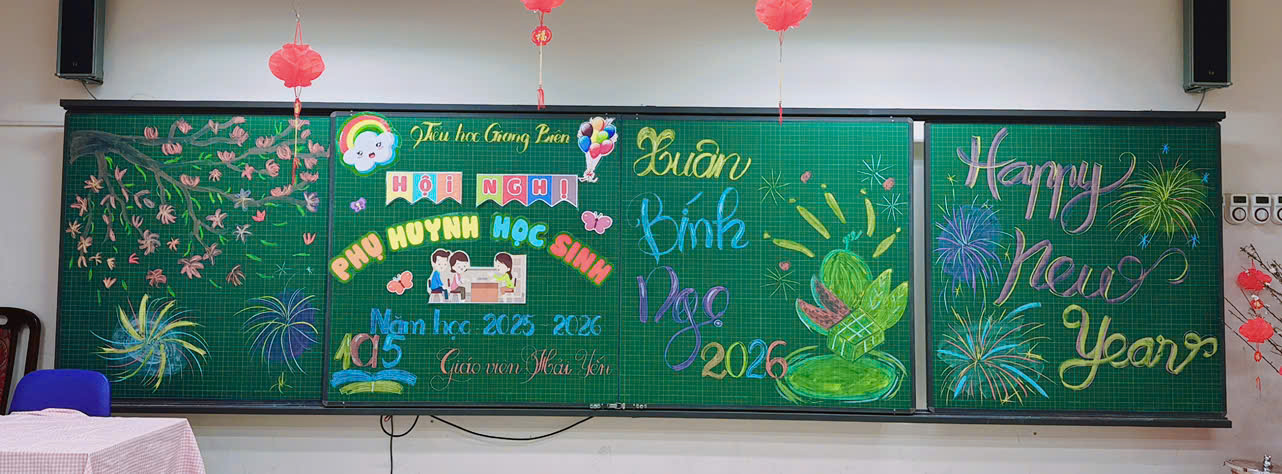 Tiểu học Giang Biên
HỘI NGHỊ
PHỤ HUYNH HỌC SINH
Năm học 2025 2026
1a5
Giáo viên Mai Yến
Xuân
Bính
Ngọ
2026
Happy
New
Year
福